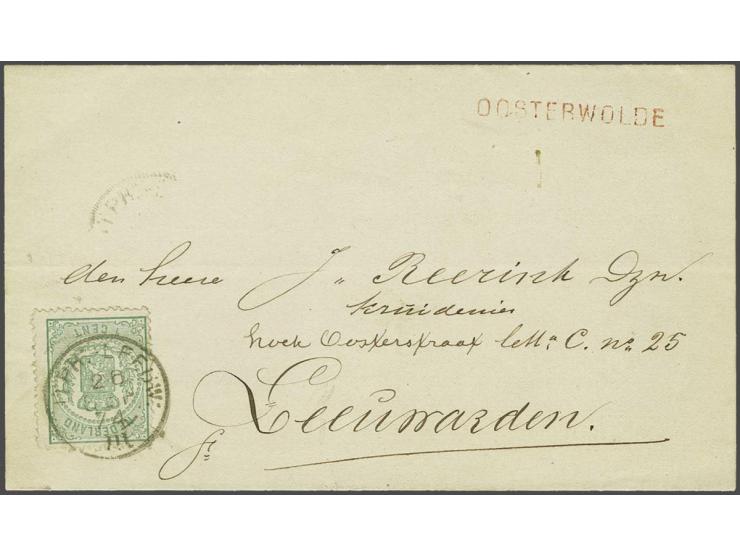 OOSTERWOLDE
den heere J. Reerink Dzn.
kruidenier
hoek Oosterstraat letta C. no 25
Leeuwarden.
fr
1 CENT
NEDERLAND
ZPH-LEEUW:
26
74
III